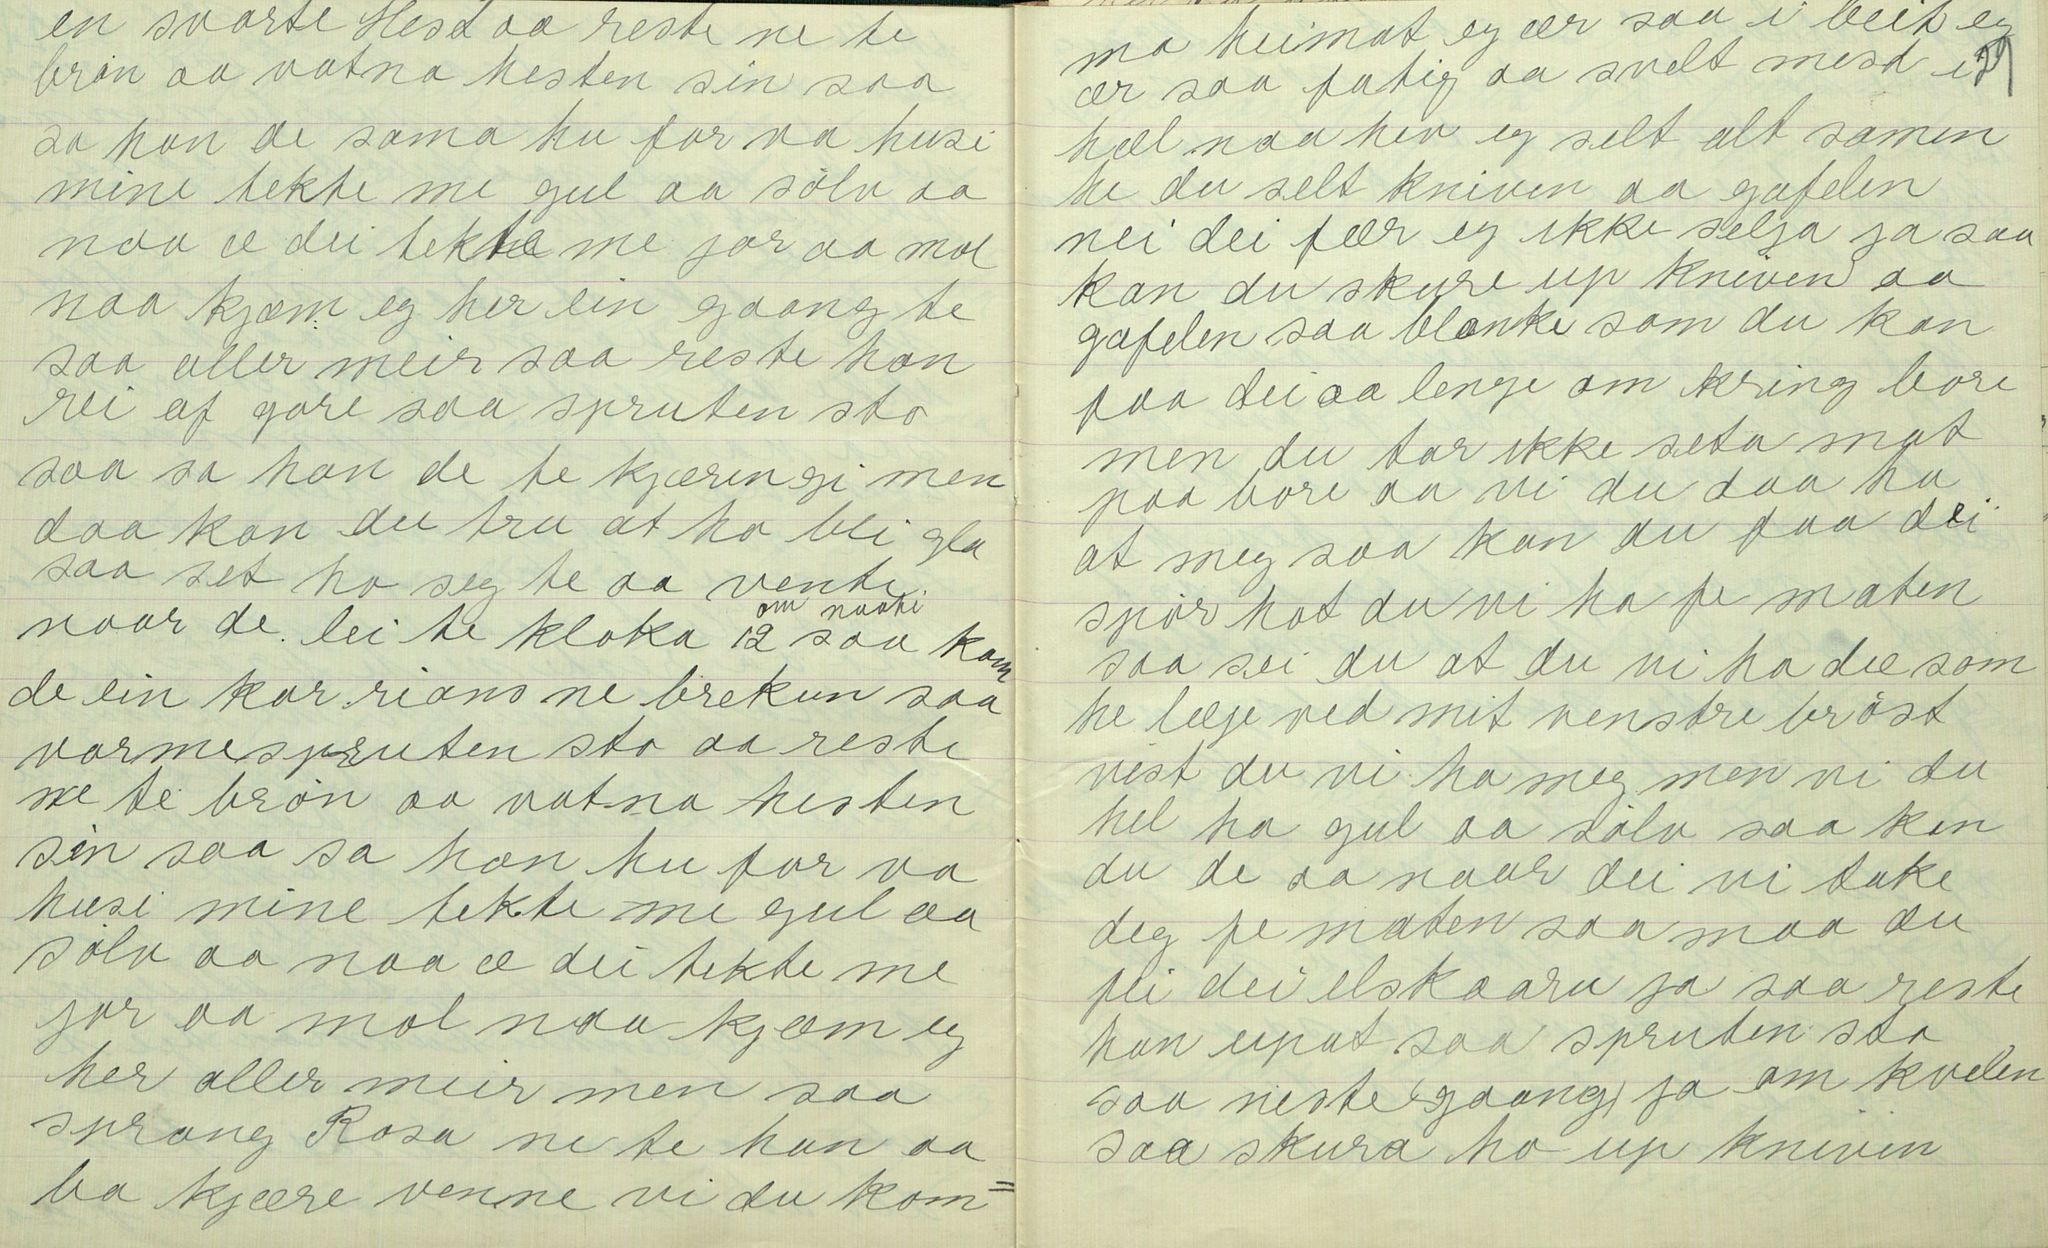 en svarte Hest aa reste ne te
brøn aa vatna hesten sin saa
sa han de sama hu for va husi
mine tekte me gul aa sølv aa
naa æ dei tekte me jor aa mol
naa kjæm eg her ein gaang te
saa aller meir saa reste han
rei af gare saa spruten sto
saa sa han de te kjæringi men
daa kan du tru at ho blei gla
saa set ho seg te aa venti
naar de lei te kloka 12 om naati saa kom
de ein kar rians ne brekun saa
varmespruten sto aa reste
ne te brøn aa vatna hesten
sin saa sa han hu for va
husi mine tekte me gul aa
sølv aa naa æ dei tekte me
jor aa mol naa kjæm eg
her aller meir men saa
sprang Rosa ne te han aa
ba kjære venne vi du kom=
ma heimat eg ær saa i beit eg
ær saa fatig aa svelt mest i
hæl naa hev eg selt alt samen
he du selt kniven aa gafelen
nei dei fær eg ikke selja ja saa
kan du skure up kniven aa
gafelen saa blanke som du kan
faa dei aa lenge om kring bore
men du tar ikke seta mat
paa bore aa vi du daa ha
at meg saa kan du faa dei
spør hot du vi ha fe maten
saa sei du at du vi ha dæ som
he læge ved mit venstre brøst
vist du vi ha meg men vi du
hel ha gul aa sølv saa kan
du de aa naar dei vi take
deg fe maten saa maa du
fei dei elskaaru ja saa reste
han upat saa spruten sto
saa neste (gaang) ja om kvelen
saa skura ho up kniven